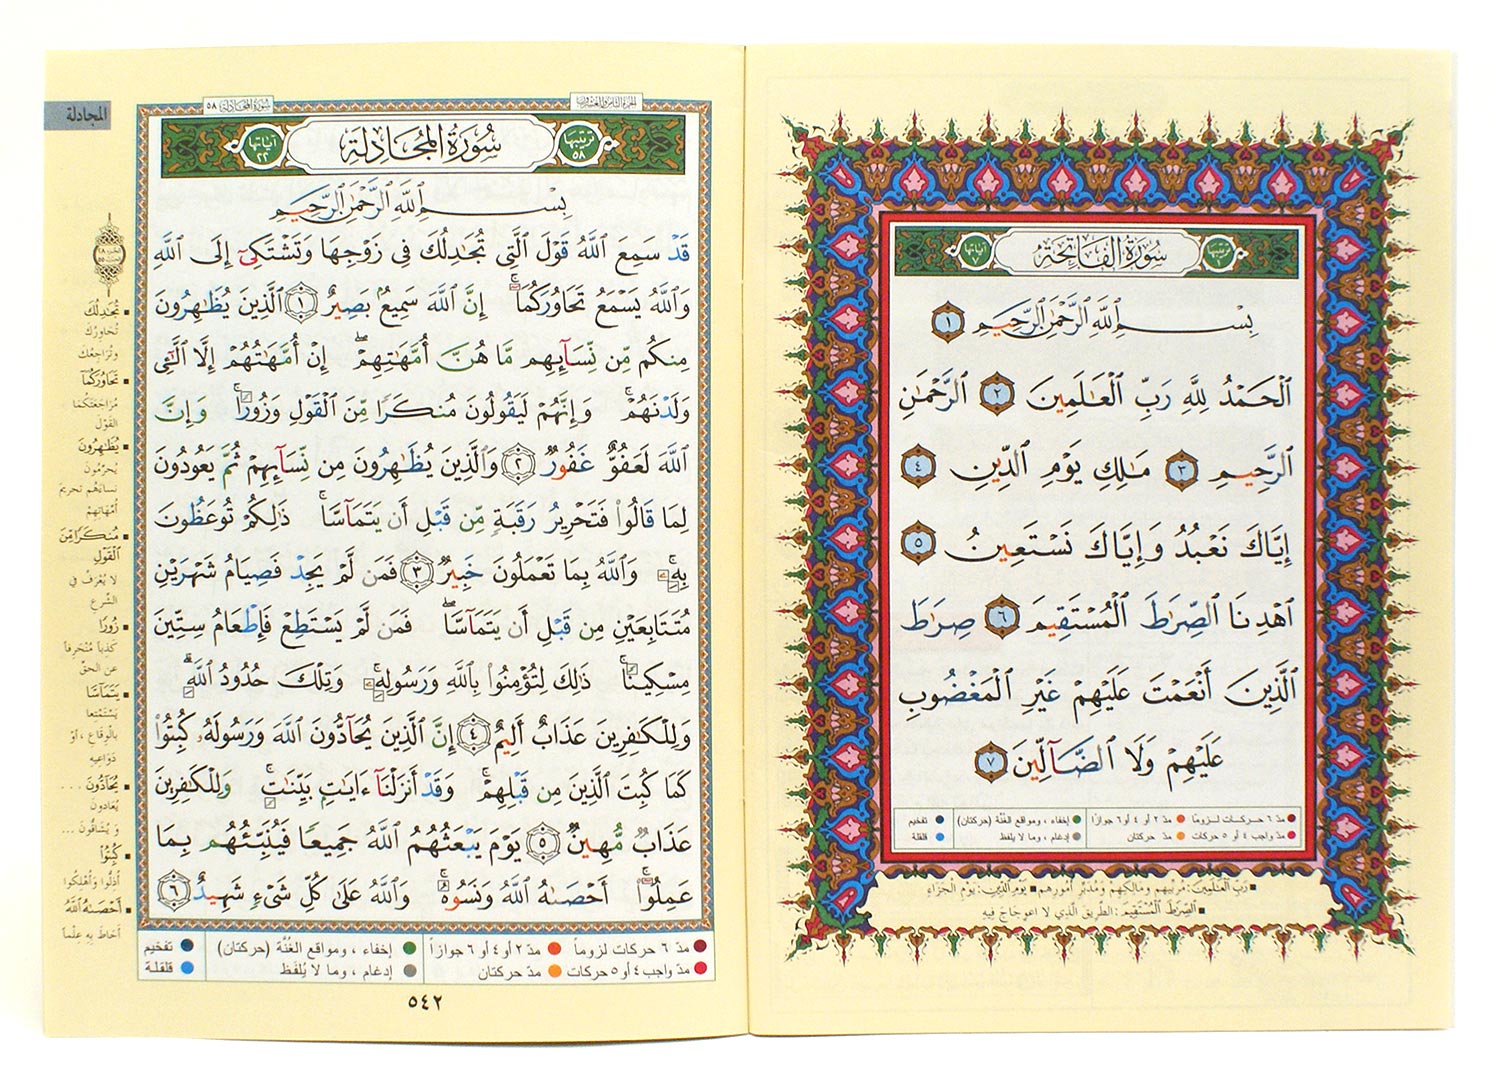 سُورَةُ الفَاتِحَةِ
ترتيبها ١
آياتها ٧
بِسْمِ ٱللَّهِ ٱلرَّحْمَٰنِ ٱلرَّحِيمِ ١
ٱلْحَمْدُ لِلَّهِ رَبِّ ٱلْعَٰلَمِينَ ٢ ٱلرَّحْمَٰنِ
ٱلرَّحِيمِ ٣ مَٰلِكِ يَوْمِ ٱلدِّينِ ٤
إِيَّاكَ نَعْبُدُ وَإِيَّاكَ نَسْتَعِينُ ٥
ٱهْدِنَا ٱلصِّرَٰطَ ٱلْمُسْتَقِيمَ ٦ صِرَٰطَ
ٱلَّذِينَ أَنْعَمْتَ عَلَيْهِمْ غَيْرِ ٱلْمَغْضُوبِ
عَلَيْهِمْ وَلَا ٱلضَّآلِّينَ ٧
مدّ ٦ حركات لزوماً مدّ ٢ أو ٤ أو ٦ جوازاً إخفاء ، ومواقع الغُنَّة (حركتان) تفخيم
مدّ واجب ٤ أو ٥ حركات مدّ حركتان إدغام ، وما لا يلفظ قلقلة
رَبِّ الْعَالَمِينَ: مُرَبِّيهِم وَمَالِكِهِمْ وَمُدَبِّرِ أُمُورِهِم يَوْمِ الدِّينِ: يَوْمِ الجَزَاءِ
الصِّرَٰطَ الْمُسْتَقِيمَ: الطَّرِيقَ الَّذِي لا اعْوِجَاجَ فِيهِ
الجزء الثامن والعشرون
سورة المجادلة ٥٨
المجادلة
سُورَةُ المُجَادِلَةِ
ترتيبها ٥٨
آياتها ٢٢
بِسْمِ ٱللَّهِ ٱلرَّحْمَٰنِ ٱلرَّحِيمِ
قَدْ سَمِعَ ٱللَّهُ قَوْلَ ٱلَّتِى تُجَٰدِلُكَ فِى زَوْجِهَا وَتَشْتَكِىٓ إِلَى ٱللَّهِ
وَٱللَّهُ يَسْمَعُ تَحَاوُرَكُمَآ ۚ إِنَّ ٱللَّهَ سَمِيعٌۢ بَصِيرٌ ١ ٱلَّذِينَ يُظَٰهِرُونَ
مِنكُم مِّن نِّسَآئِهِم مَّا هُنَّ أُمَّهَٰتِهِمْ ۖ إِنْ أُمَّهَٰتُهُمْ إِلَّا ٱلَّٰٓـِٔى
وَلَدْنَهُمْ ۚ وَإِنَّهُمْ لَيَقُولُونَ مُنكَرًا مِّنَ ٱلْقَوْلِ وَزُورًا ۚ وَإِنَّ
ٱللَّهَ لَعَفُوٌّ غَفُورٌ ٢ وَٱلَّذِينَ يُظَٰهِرُونَ مِن نِّسَآئِهِمْ ثُمَّ يَعُودُونَ
لِمَا قَالُوا۟ فَتَحْرِيرُ رَقَبَةٍ مِّن قَبْلِ أَن يَتَمَآسَّا ۚ ذَٰلِكُمْ تُوعَظُونَ
بِهِۦ ۚ وَٱللَّهُ بِمَا تَعْمَلُونَ خَبِيرٌ ٣ فَمَن لَّمْ يَجِدْ فَصِيَامُ شَهْرَيْنِ
مُتَتَابِعَيْنِ مِن قَبْلِ أَن يَتَمَآسَّا ۖ فَمَن لَّمْ يَسْتَطِعْ فَإِطْعَامُ سِتِّينَ
مِسْكِينًا ۚ ذَٰلِكَ لِتُؤْمِنُوا۟ بِٱللَّهِ وَرَسُولِهِۦ ۚ وَتِلْكَ حُدُودُ ٱللَّهِ ۗ
وَلِلْكَٰفِرِينَ عَذَابٌ أَلِيمٌ ٤ إِنَّ ٱلَّذِينَ يُحَآدُّونَ ٱللَّهَ وَرَسُولَهُۥ كُبِتُوا۟
كَمَا كُبِتَ ٱلَّذِينَ مِن قَبْلِهِمْ ۚ وَقَدْ أَنزَلْنَآ ءَايَٰتٍۭ بَيِّنَٰتٍ ۚ وَلِلْكَٰفِرِينَ
عَذَابٌ مُّهِينٌ ٥ يَوْمَ يَبْعَثُهُمُ ٱللَّهُ جَمِيعًا فَيُنَبِّئُهُم بِمَا
عَمِلُوٓا۟ ۚ أَحْصَىٰهُ ٱللَّهُ وَنَسُوهُ ۚ وَٱللَّهُ عَلَىٰ كُلِّ شَىْءٍ شَهِيدٌ ٦
تُجَٰدِلُكَ
تُحَاوِرُكَ
وتُرَاجِعُك
تَحَاوُرَكُمَا
مُرَاجَعَتَكُمَا
القَوْلَ
يُظَٰهِرُونَ
يُحَرِّمُونَ
نساءَهُم تحريمَ
أُمَّهَاتِهِمْ
مُنكَرًا مِّنَ
الْقَوْلِ
لا يُعْرَفُ في
الشَّرعِ
زُورًا
كَذِباً مُنْحَرِفاً
عن الحقّ
يَتَمَآسَّا
يَسْتَمْتِعا
بالْوِقَاعِ ، أوْ
دَوَاعِيهِ
يُحَآدُّونَ ...
يُعَادونَ
وَ يُشَاقُّونَ ...
كُبِتُوا
أُذِلُّوا وَأُهْلِكُوا
أَحْصَىٰهُ اللَّهُ
أَحَاطَ بِهِ عِلْماً
مدّ ٦ حركات لزوماً مدّ ٢ أو ٤ أو ٦ جوازاً إخفاء ، ومواقع الغُنَّة (حركتان) تفخيم
مدّ واجب ٤ أو ٥ حركات مدّ حركتان إدغام ، وما لا يُلفَظ قلقلة
٥٤٢